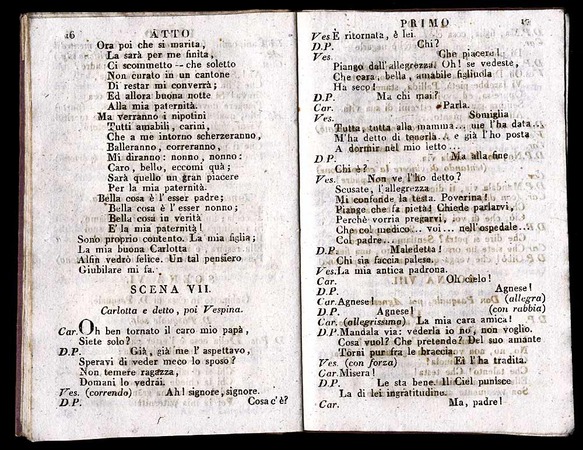 16 ATTO
Ora poi che si marita,
La sarà per me finita,
Ci scommetto – che soletto
Non curato in un cantone
Di restar mi converrà;
Ed allora buona notte
Alla mia paternità.
Ma verranno i nipotini
Tutti amabili, carini,
Che a me intorno scherzeranno,
Balleranno, correranno,
Mi diranno: nonno, nonno:
Caro, bello, eccomi quà;
Sarà quello un gran piacere
Per la mia paternità.
Bella cosa è l'esser padre;
Bella cosa è l'esser nonno;
Bella cosa in verità
E' la mia paternità!
Sono proprio contento. La mia figlia;
La mia buona Carlotta
Alfin vedrò felice. Un tal pensiero
Giubilare mi fa.
SCENA VII.
Carlotta e detto, poi Vespina.
Car. Oh ben tornato il caro mio papà,
Siete solo?
D.P. Già, già me l'aspettavo,
Speravi di veder meco lo sposo?
Non temere ragazza,
Domani lo vedrai.
Ves. (correndo) Ah! signore, signore.
D.P. Cosa c'è?
PRIMO 17
Ves. È ritornata, è lei.
D.P. Chi?
Ves. Che piacere!
Piango dall'allegrezza. Oh! se vedeste,
Che cara, bella, amabile figliuola
Ha seco!
D.P. Ma chi mai?
Car. Parla.
Ves. Somiglia
Tutta, tutta alla mamma... me l'ha data...
M'ha detto di tenerla... e già l'ho posta
A dormir nel mio letto...
D.P. Ma alla fine
Chi è?
Ves. Non ve l'ho detto?
Scusate, l'allegrezza
Mi confonde la testa. Poverina!
Piange che fa pietà! Chiede parlarvi,
Perchè vorria pregarvi,
Che col medico... voi... nell'ospedale...
Col padre...
D.P. Maledetta!
Chi sia faccia palese.
Ves. La mia antica padrona.
Car. Oh cielo!
D.P. Agnese!
Car. Agnese! (allegra)
D.P. Agnese! (con rabbia)
Car. (allegrissima) La mia cara amica!
D.P. Mandala via: vederla io no, non voglio.
Cosa vuol? Che pretende? Del suo amante
Torni pur fra le braccia.
Ves. (con forza) Ei l'ha tradita.
Car. Misera!
D.P. Le sta bene. Il Ciel punisce
La di lei ingratitudine.
Car. Ma, padre!